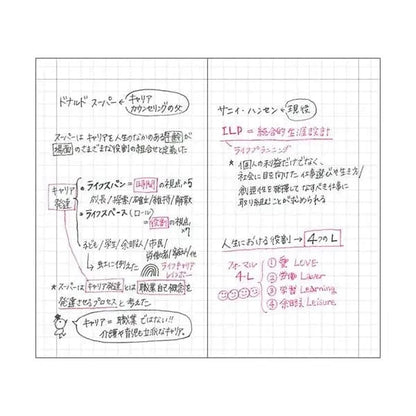 ドナルド スーパー ← キャリアカウンセリングの父
スーパーは キャリアを人生のなかのある年齢が
場面のさまざまな役割の組合せと定義した
キャリア発達
・ライフスパン = 時間の視点 ×5
成長/探索/確立/維持/解放
・ライフスペース(ロール)
= 役割の視点 ×7
子ども/学生/余暇人/市民/
労働者/
→ 虹に例えた
ライフキャリアレインボー
* スーパーは キャリア発達とは 職業自己概念を
発達させるプロセスと考えた
キャリア = 職業 ではない!!
介護や育児も立派なキャリア。
サニィ・ハンセン ← 現性
ILP = 総合的生涯設計
ライフプランニング
* 個人の利益だけでなく、
社会に目を向けた仕事選びや生き方/
創造性を発揮して なすべき仕事に
取り組むことが求められる
人生における役割 → 4つのL
フォーマル
4-L
① 愛 LOVE
② 労働 Labor
③ 学習 Learning
④ 余暇 Leisure